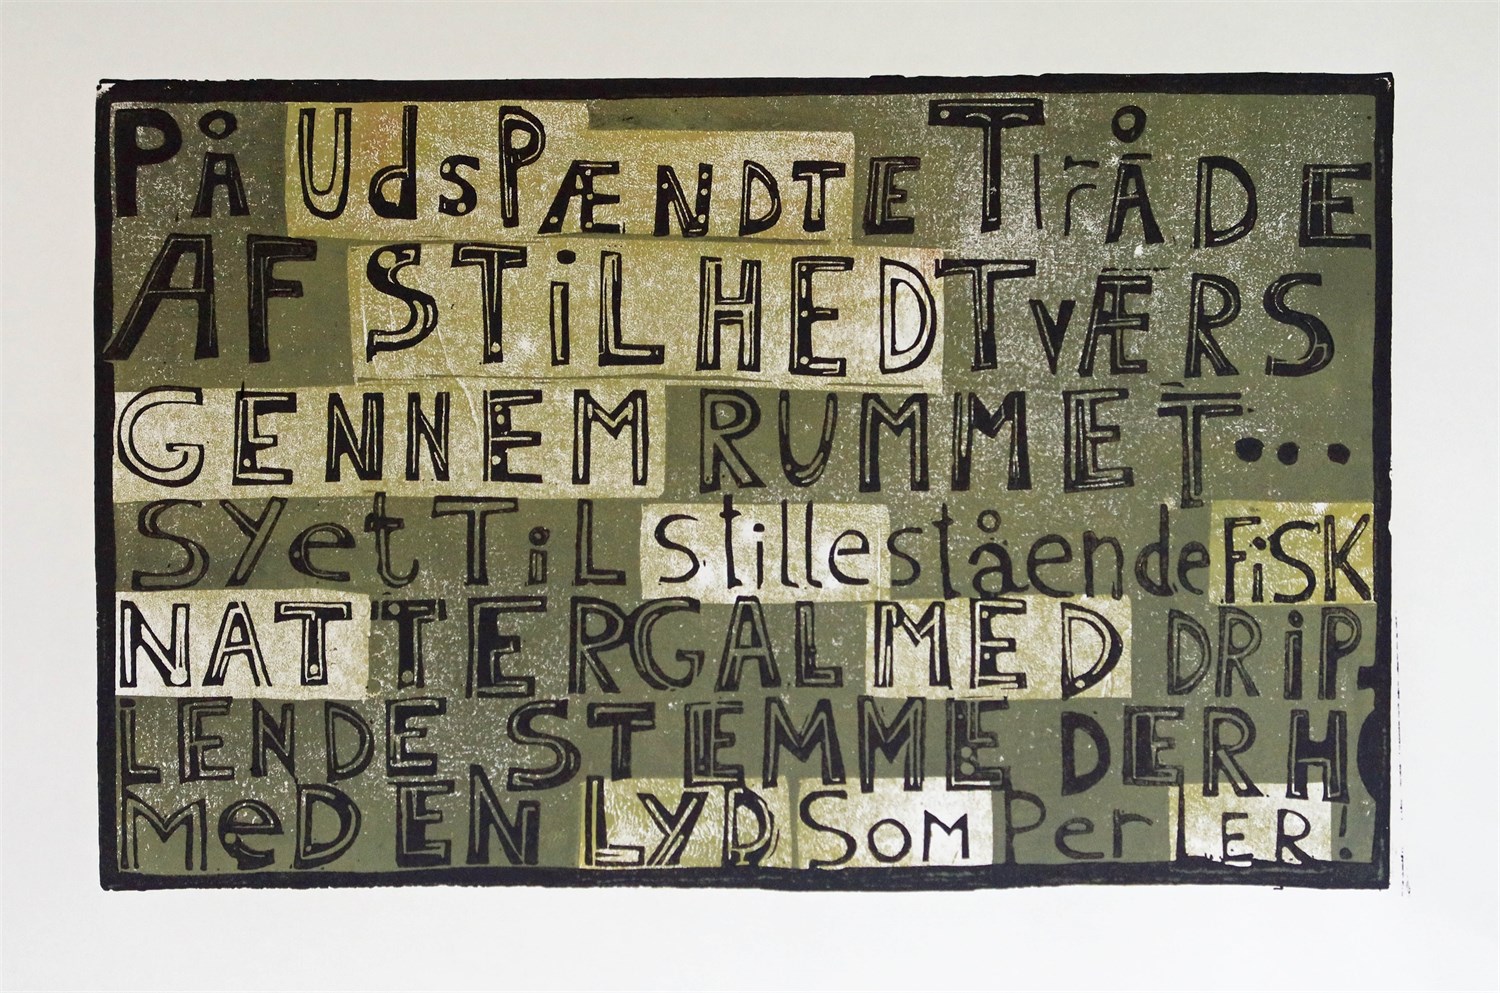 PÅ UdSPÆNDTE TRÅDE
AF STiLHED TVÆRS
GENNEM RUMMET...
SYet TiL stillestående FiSK
NATTERGAL MED DRiP
LENDE STEMME DER H
MeD EN LYD SOM PerLER!